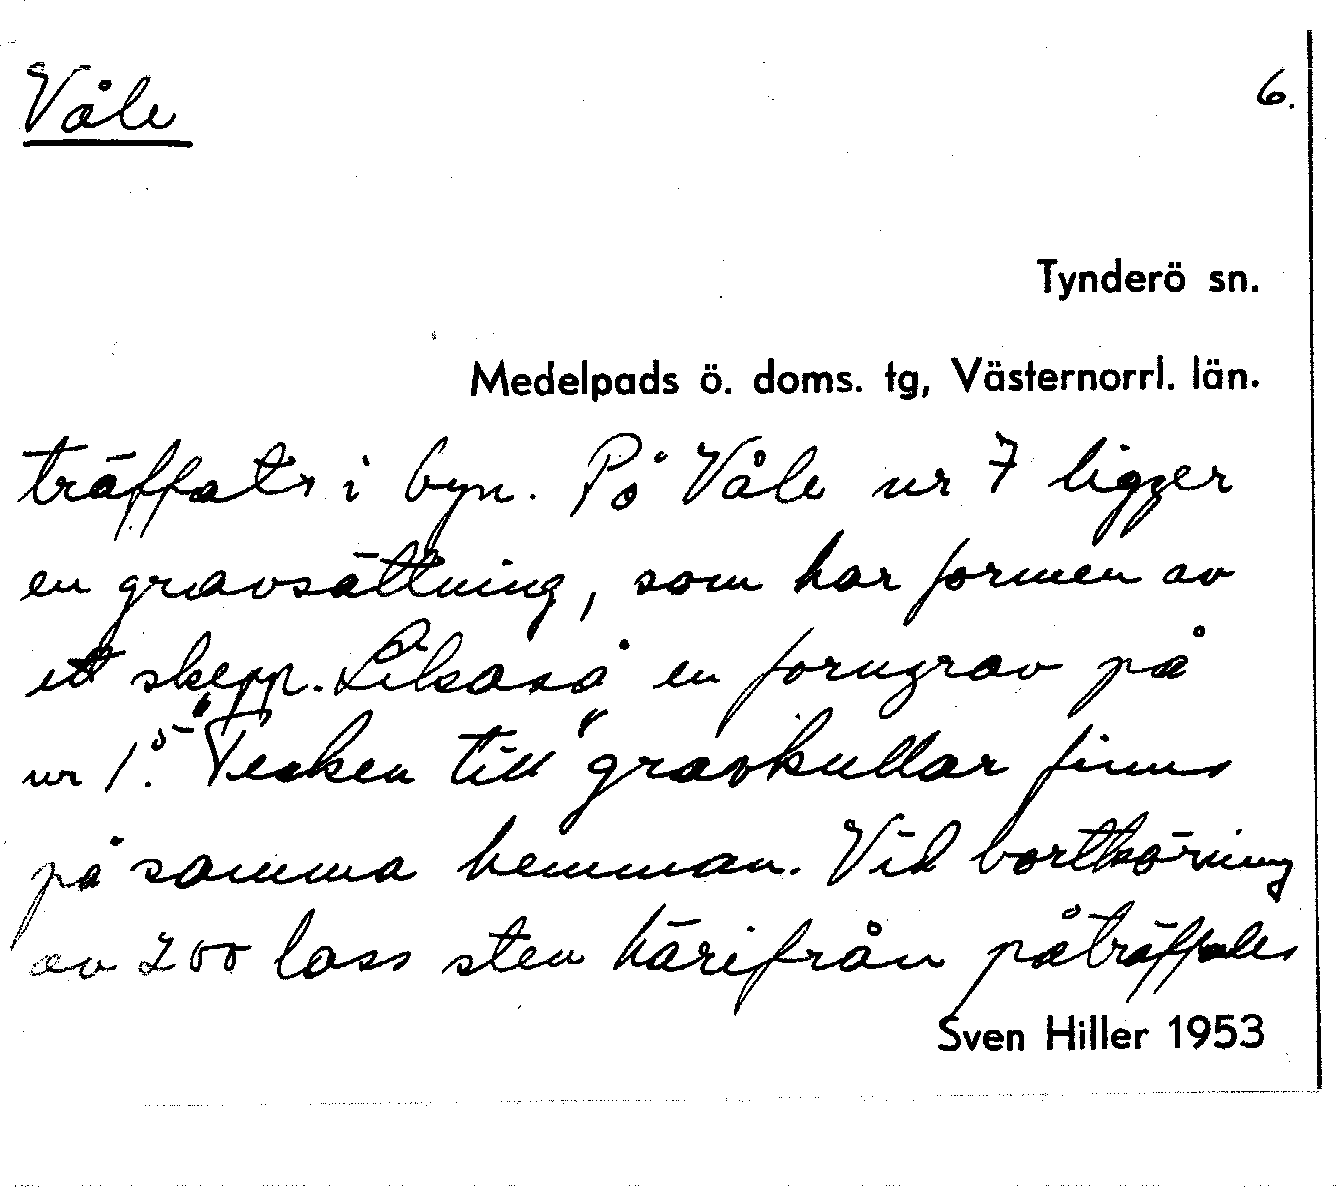 Våle
6.
Tynderö sn.
Medelpads ö. doms. tg, Västernorrl. län.
träffats i byn. På Våle nr 7 ligger
en gravsättning, som har formen av
ett skepp. Likaså en forngrav på
nr 1⁵. "Tecken till" gravkullar finns
på samma hemman. Vid bortkörning
av 200 lass sten härifrån påträffades
Sven Hiller 1953